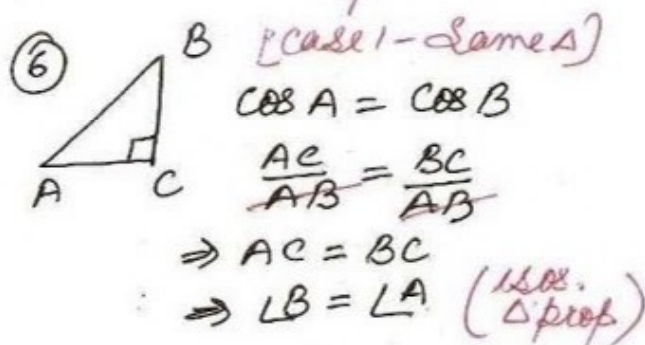 ⑥ B [Case 1 - Same Δ]
A C
cos A = cos B
AC/AB = BC/AB
⇒ AC = BC
⇒ ∠B = ∠A (isos. Δ prop)